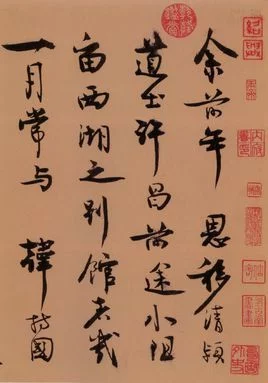 余前年 恩移清潁
道出許昌前途小阻
留西湖之別館者幾
一月常與 韓持國